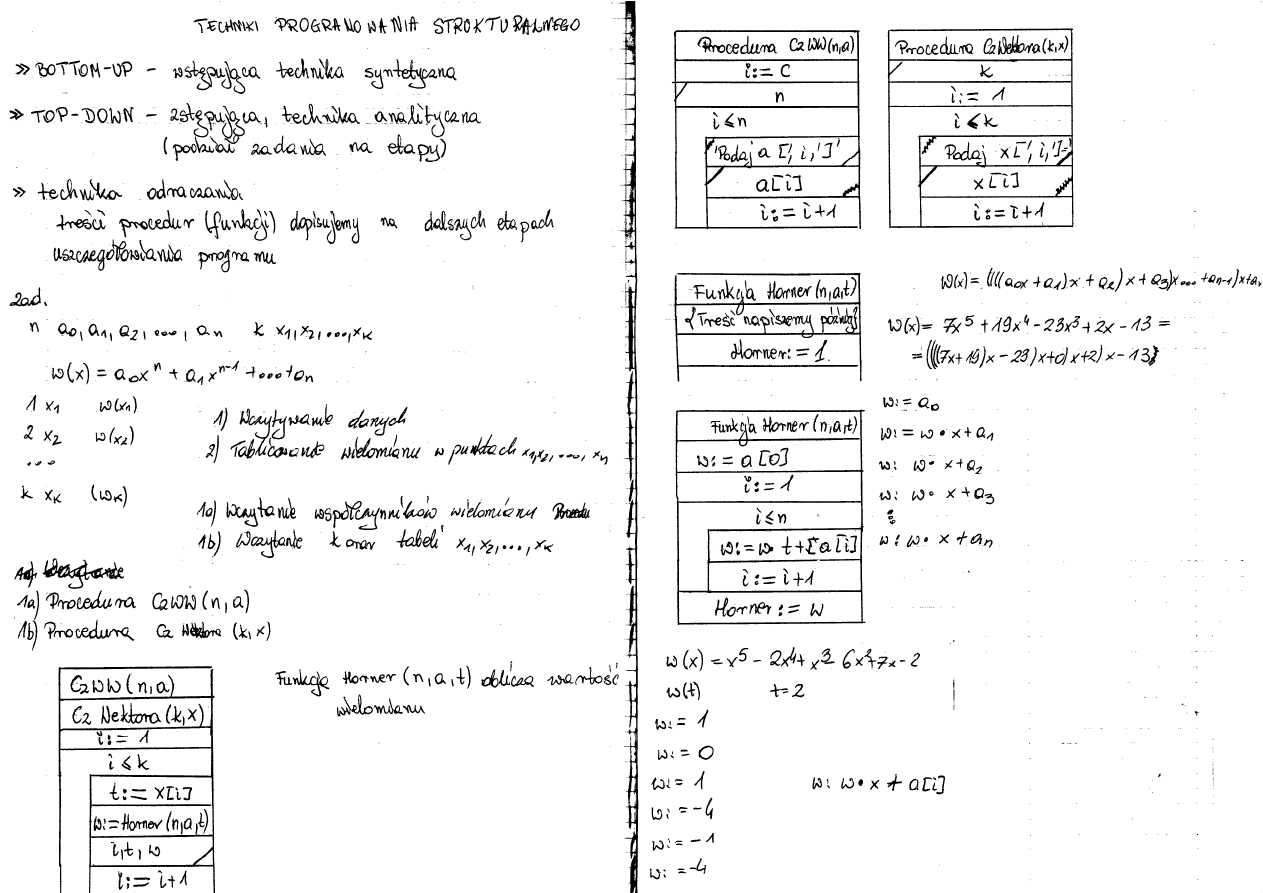 TECHNIKI PROGRAMOWANIA STRUKTURALNEGO
» BOTTOM-UP - wstępująca technika syntetyczna
» TOP-DOWN - zstępująca, technika analityczna
(podział zadania na etapy)
» technika odraczania
treści procedur (funkcji) dopisujemy na dalszych etapach
uszczegółowiania programu
Zad.
n a₀, a₁, a₂, ..., aₙ k x₁, x₂, ..., xₖ
w(x) = a₀xⁿ + a₁xⁿ⁻¹ + ... + aₙ
1 x₁ w(x₁)
2 x₂ w(x₂)
...
k xₖ (wₖ)
1) Wczytywanie danych
2) Tablicowanie wielomianu w punktach x₁, x₂, ..., xₙ
1a) Wczytanie współczynników wielomianu
1b) Wczytanie k oraz tabeli x₁, x₂, ..., xₖ
1a) Procedura CzWW(n,a)
1b) Procedura Cz Wektora (k,x)
CzWW(n,a)
Cz Wektora(k,x)
i:= 1
i ≤ k
t:= x[i]
w:= Horner(n,a,t)
i, t, w
i:= i+1
Funkcja Horner (n,a,t) oblicza wartość
wielomianu
Procedura CzWW(n,a)
i:= C
n
i ≤ n
'Podaj a [', i, ']'
a[i]
i:= i+1
Procedura CzWektora(k,x)
k
i:= 1
i ≤ k
Podaj x[', i, ']='
x[i]
i:= i+1
Funkcja Horner (n,a,t)
{Treść napiszemy później}
Horner:= 1.
W(x) = ((((a₀x + a₁)x + a₂)x + a₃)x ... + aₙ₋₁)x + aₙ
W(x) = 7x⁵ + 19x⁴ - 23x³ + 2x - 13 =
= ((((7x + 19)x - 23)x + 0)x + 2)x - 13}
Funkcja Horner (n,a,t)
w:= a[0]
i:= 1
i ≤ n
w:= w• t+[a[i]
i:= i+1
Horner:= w
w:= a₀
w:= w• x + a₁
w: w• x + a₂
w: w• x + a₃
⋮
w: w• x + aₙ
w(x) = x⁵ - 2x⁴ + x³ - 6x² + 7x - 2
w(t) t = 2
w:= 1
w:= 0
w:= 1
w: w• x + a[i]
w:= -4
w:= -1
w: = -4